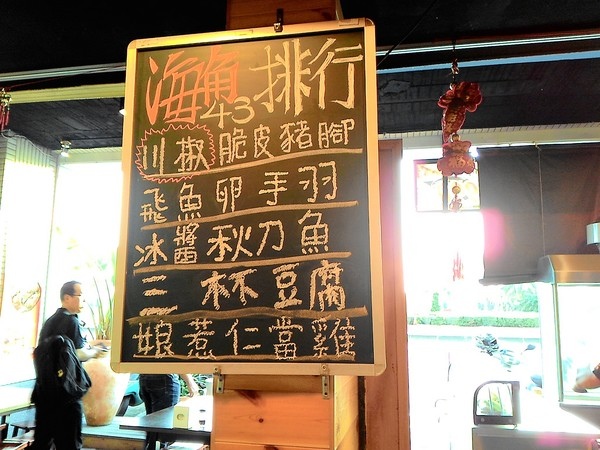 海角43排行
川椒脆皮豬腳
飛魚卵手羽
冰醬秋刀魚
三杯豆腐
娘惹仁當雞